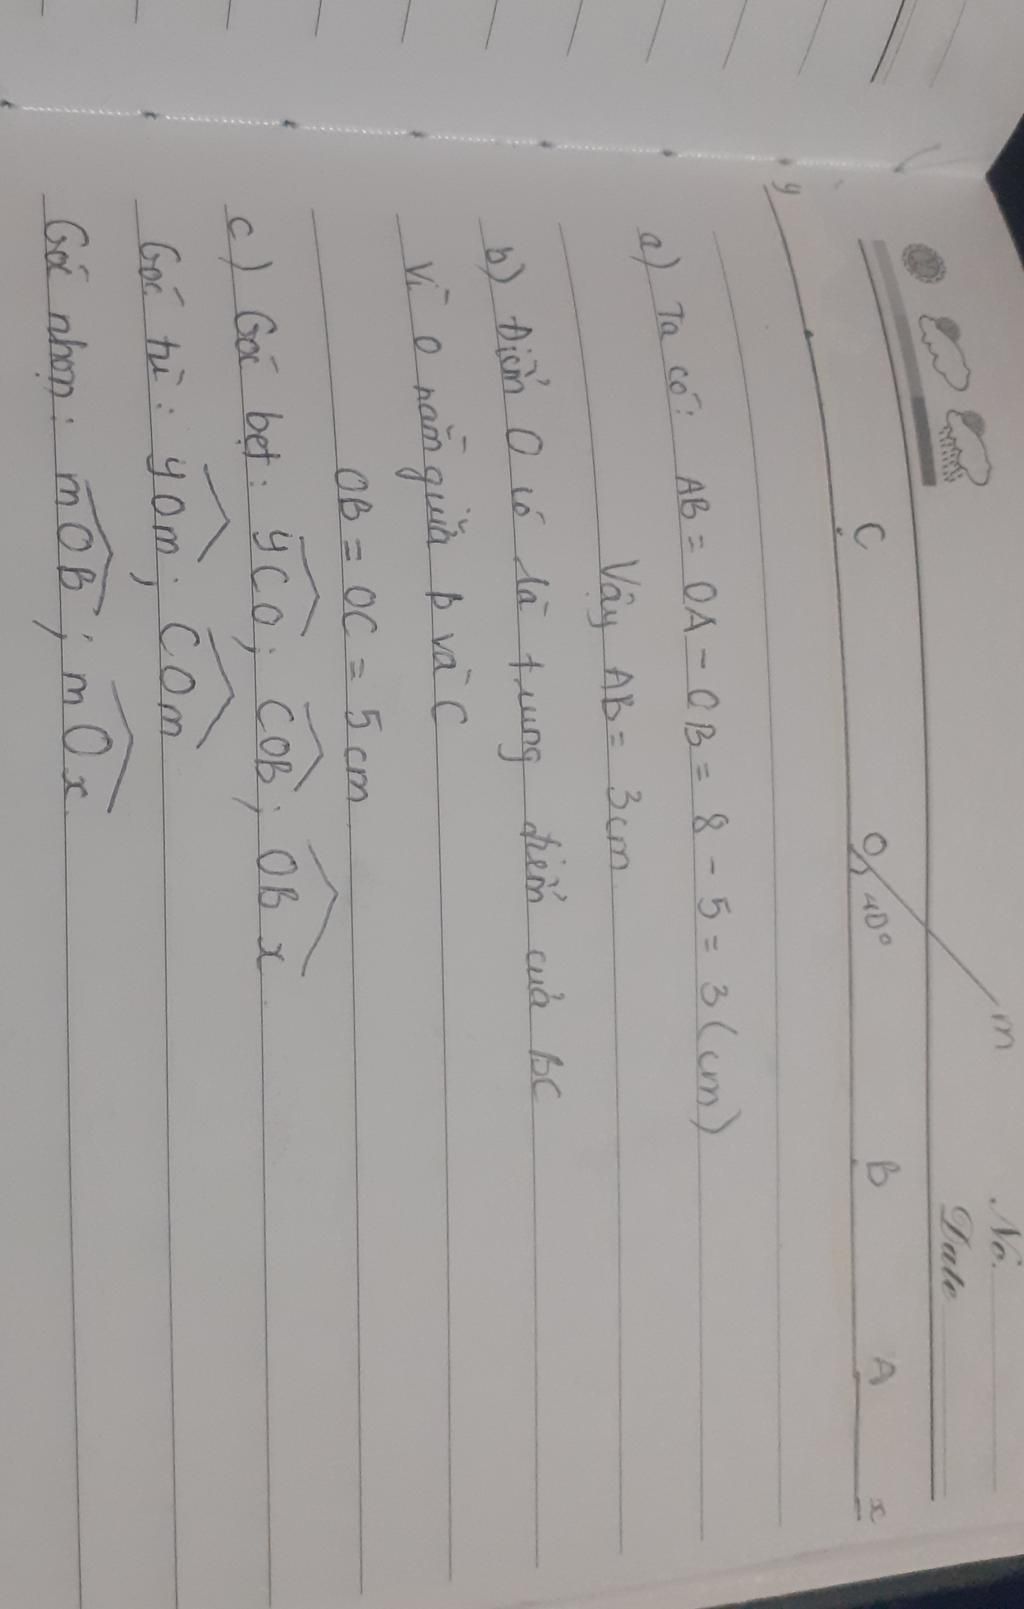 No.
Date
m
y C O 40° B A x
a) Ta có: AB = OA - OB = 8 - 5 = 3 (cm)
Vậy AB = 3cm
b) Điểm O có là trung điểm của BC
Vì O nằm giữa B và C
OB = OC = 5cm
c) Góc bẹt: yCO; COB; OBx.
Góc tù: yOm; COm
Góc nhọn: mOB; mOx.